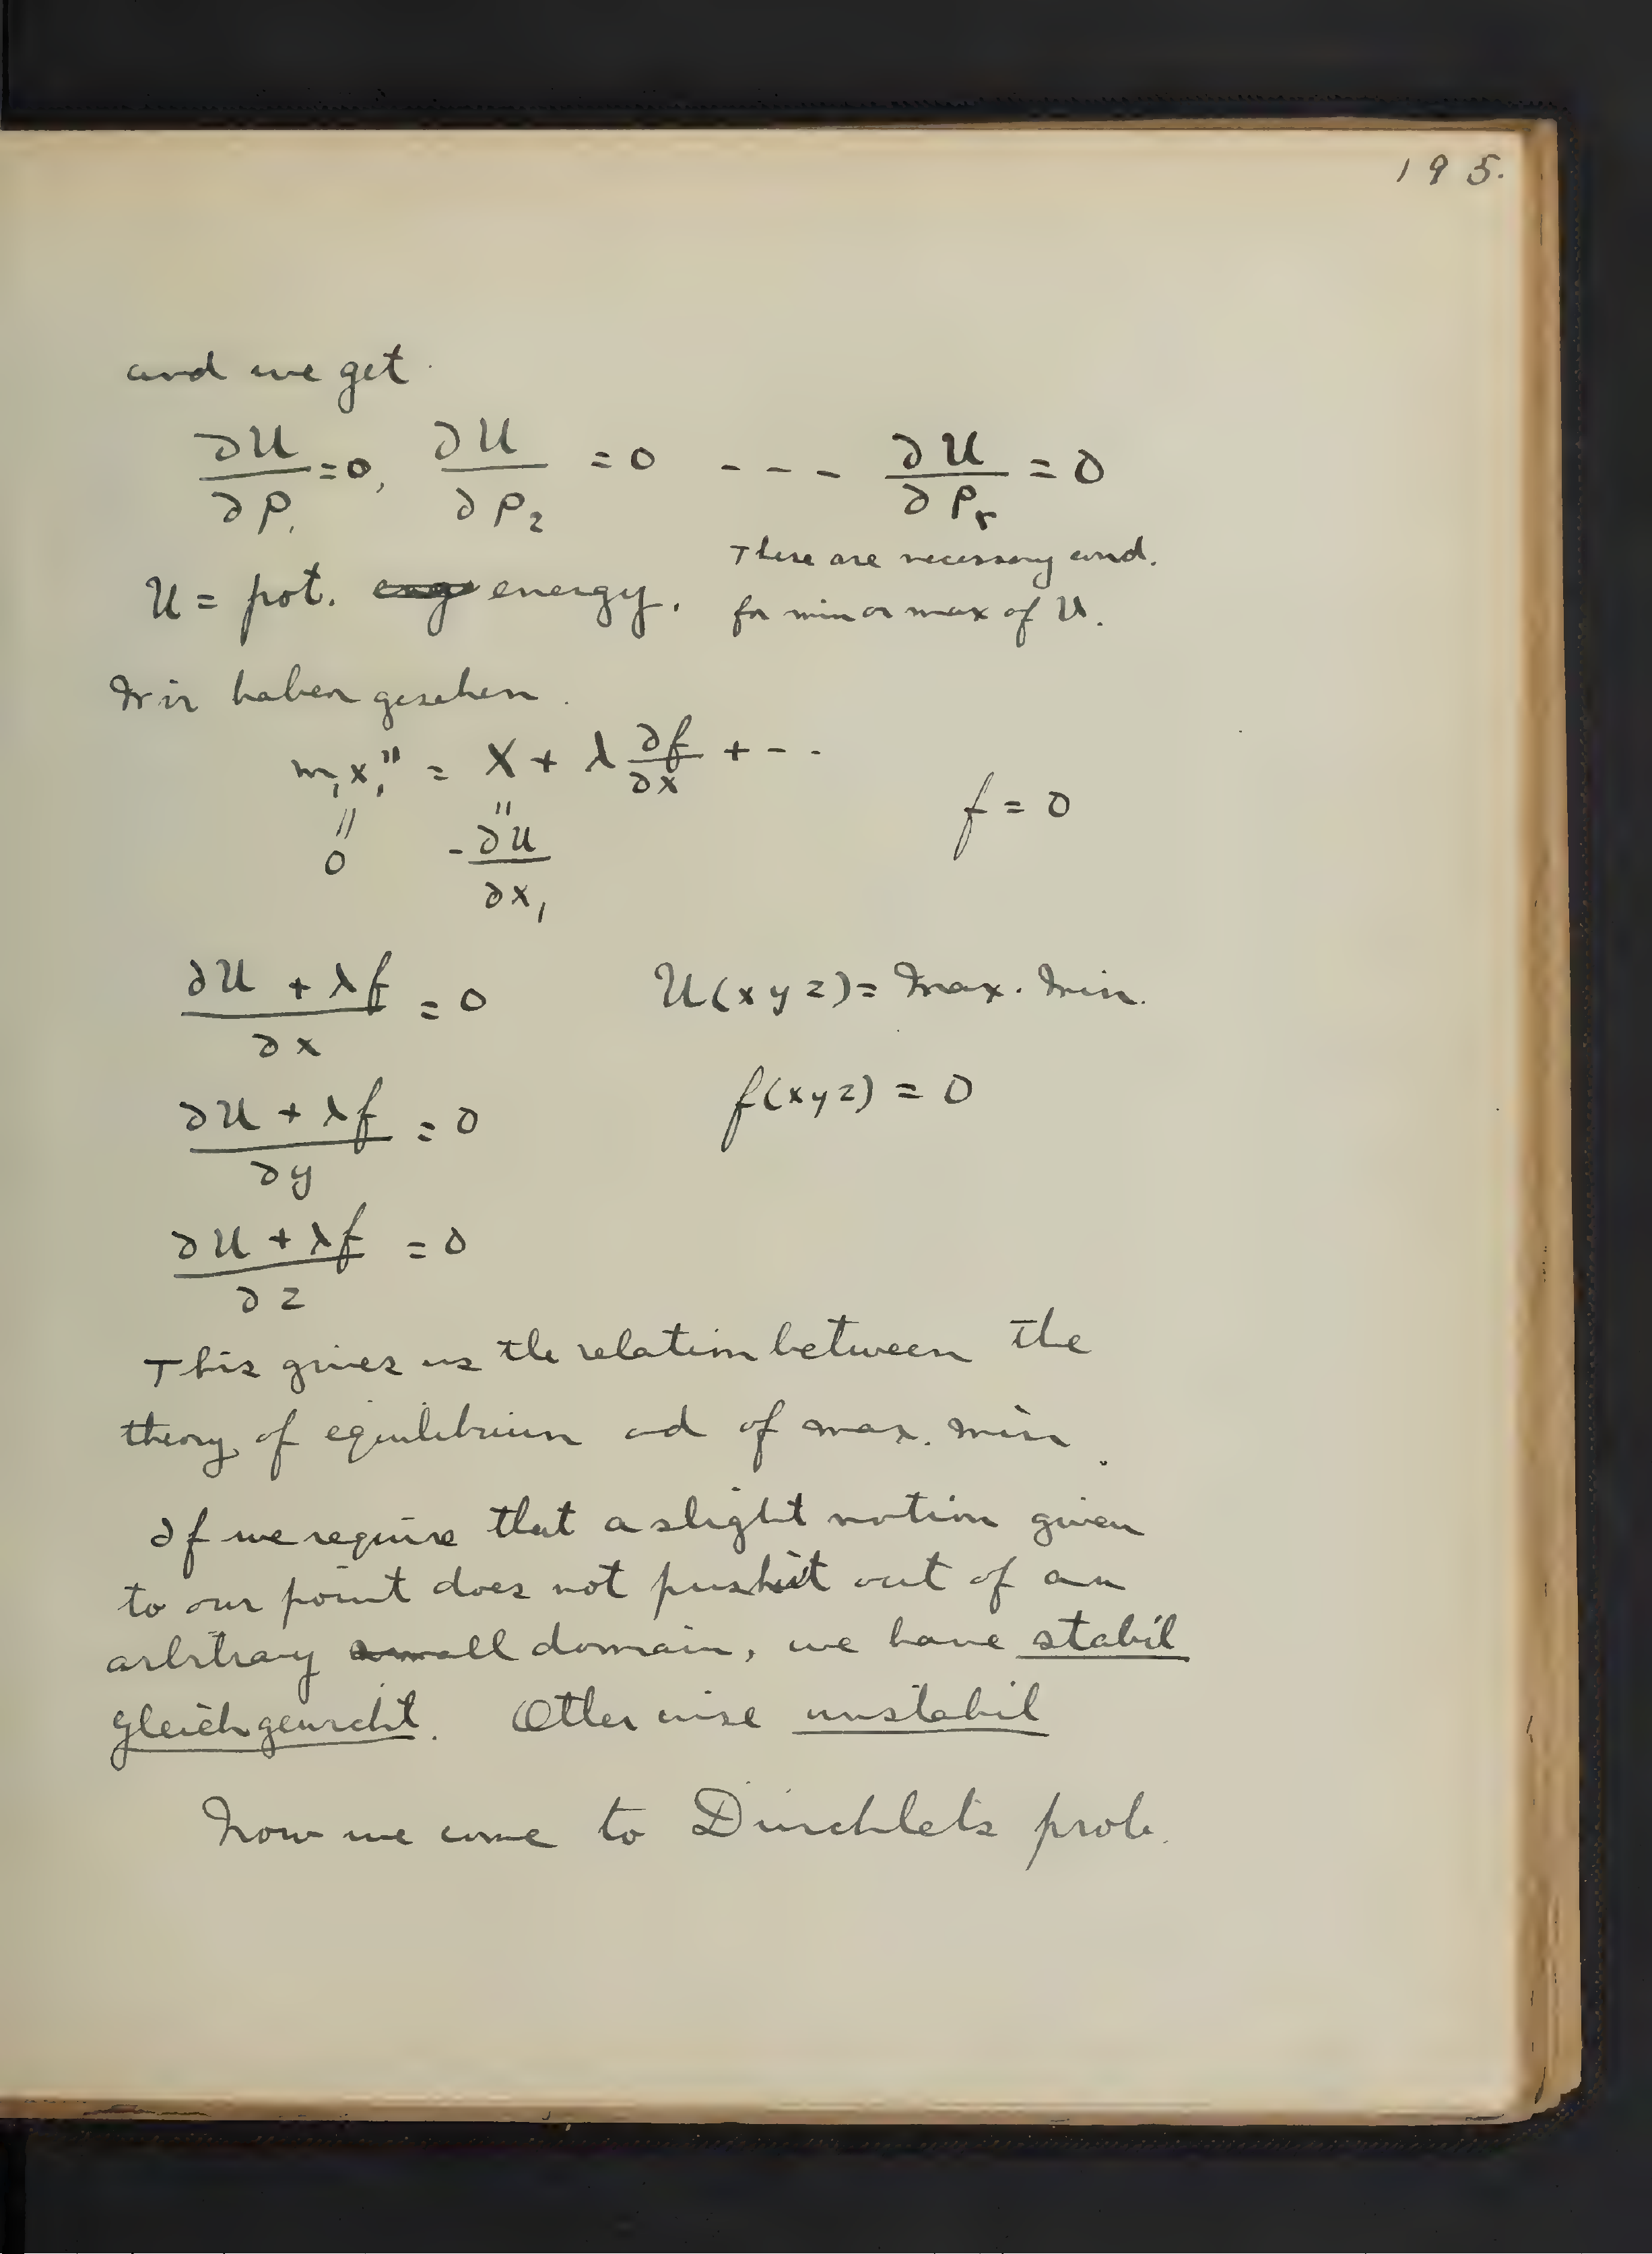 195.
and we get
∂U/∂p₁ = 0, ∂U/∂p₂ = 0 - - - ∂U/∂pᵣ = 0
U = pot. energy. These are necessary cond.
for min or max of U.
Wir haben gesehen.
m₁x₁'' = X + λ ∂f/∂x + - - -
" " f = 0
0 - ∂U/∂x₁
∂U + λf / ∂x = 0 U(xyz) = Max. Min.
∂U + λf / ∂y = 0 f(xyz) = 0
∂U + λf / ∂z = 0
This gives us the relation between the
theory of equilibrium ad of max. min.
If we require that a slight motion given
to our point does not push it out of an
arbitrary small domain, we have stabil
gleichgewicht. Otherwise unstabil
Now we come to Dirichlets prob.